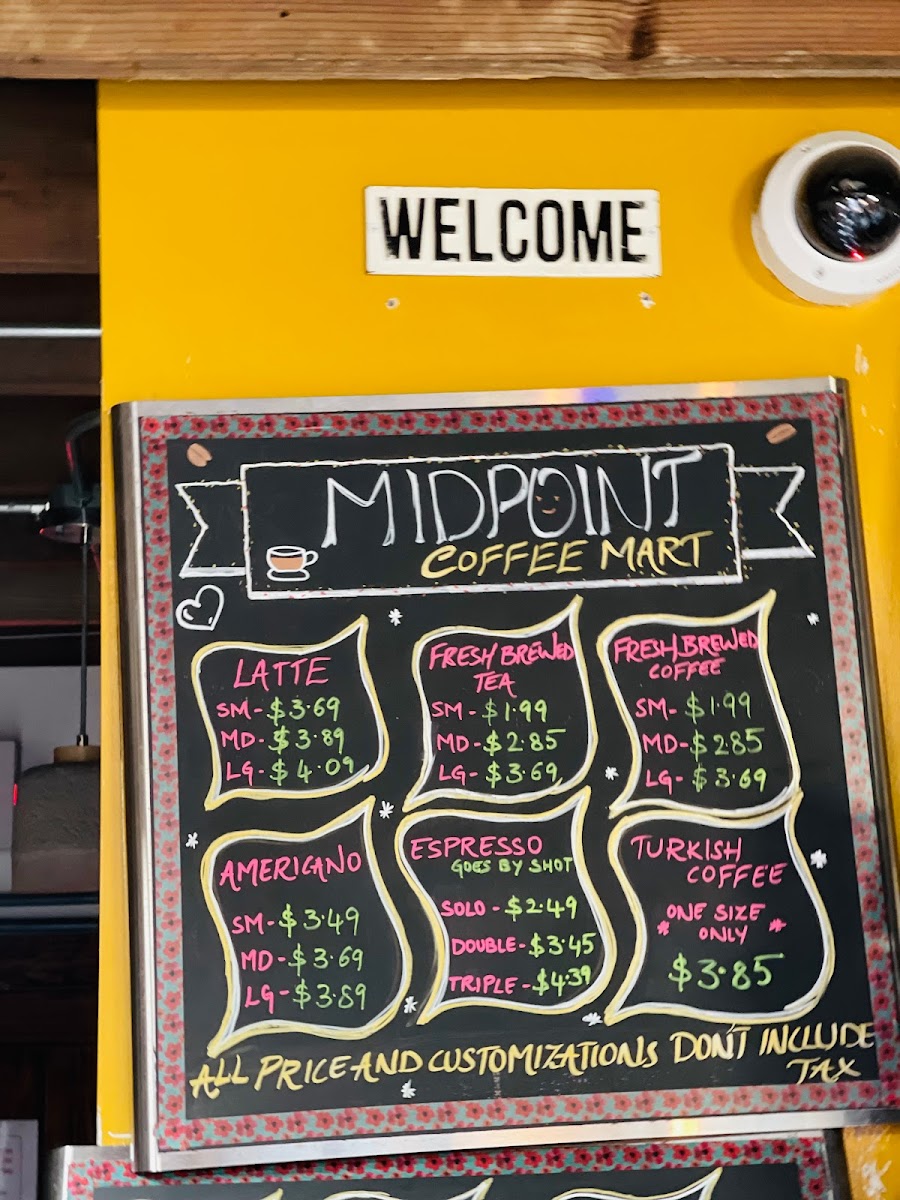 WELCOME
MIDPOINT
COFFEE MART
LATTE
SM - $3.69
MD - $3.89
LG - $4.09
FRESH BREWED
TEA
SM - $1.99
MD - $2.85
LG - $3.69
FRESH BREWED
COFFEE
SM - $1.99
MD - $2.85
LG - $3.69
AMERICANO
SM - $3.49
MD - $3.69
LG - $3.89
ESPRESSO
GOES BY SHOT
SOLO - $2.49
DOUBLE - $3.45
TRIPLE - $4.39
TURKISH
COFFEE
ONE SIZE
* ONLY *
$3.85
ALL PRICE AND CUSTOMIZATIONS DON'T INCLUDE
TAX